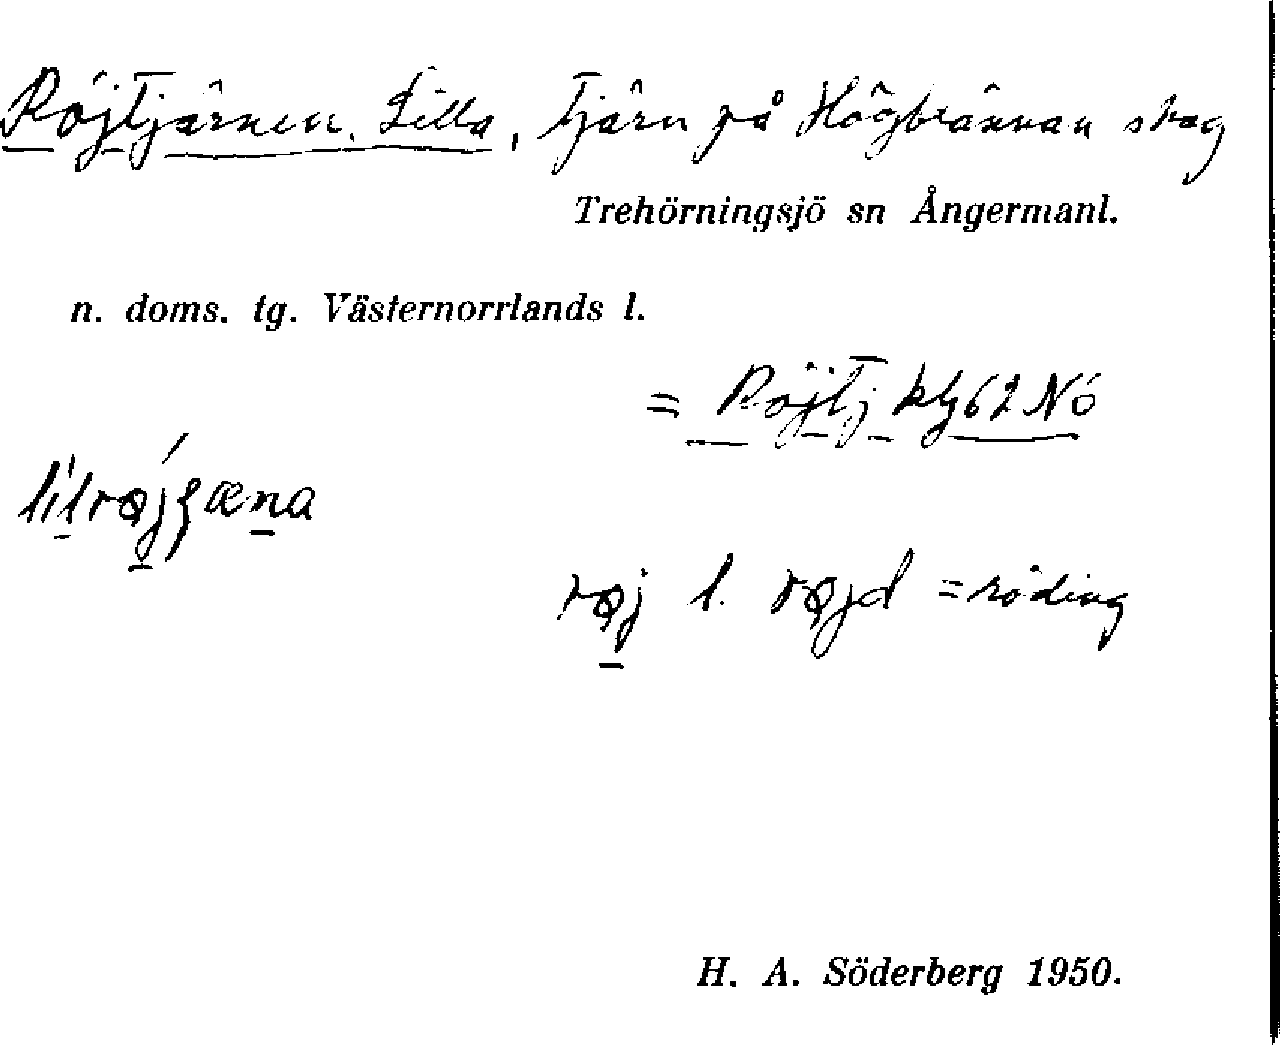 Röjtjärnen, Lilla, tjärn på Högbrännan skog
Trehörningsjö sn Ångermanl.
n. doms. tg. Västernorrlands l.
= Röjtj kbl 62 NÖ
röj l. röjd = röding
H. A. Söderberg 1950.